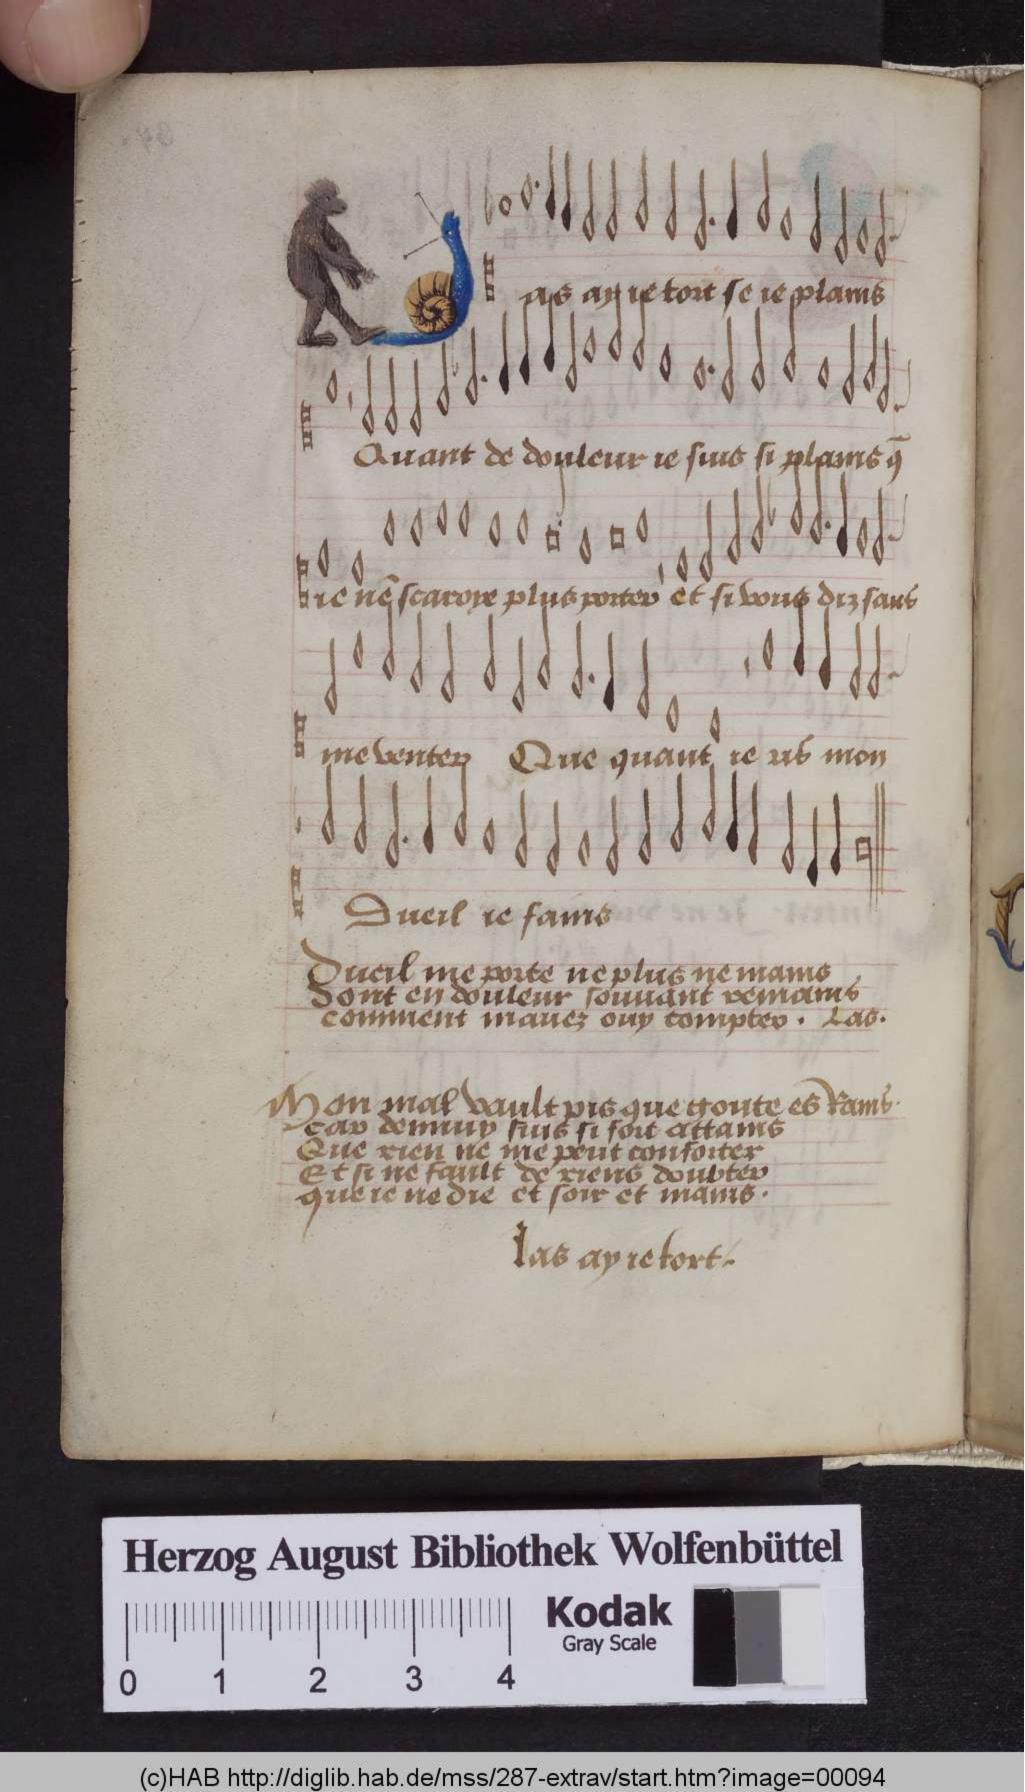 as ay ie tort se ie plains
Quant de douleur ie suis si plains q̄
ie nē scaroye plus porter et si vous diz sans
me venter Que quant ie ris mon
Dueil ie fains
Dueil me porte ne plus ne mains
Dont en douleur souuant remains
comment mauez ouy compter . Las.
Mon mal vault pis que goute es Rains.
car dennuy suis si fort attains
Que rien ne me peut conforter
Et si ne fault de riens doubter
que ie ne die et soir et mains.
las ay ie tort.
Herzog August Bibliothek Wolfenbüttel
0 1 2 3 4
Kodak
Gray Scale
(c)HAB http://diglib.hab.de/mss/287-extrav/start.htm?image=00094